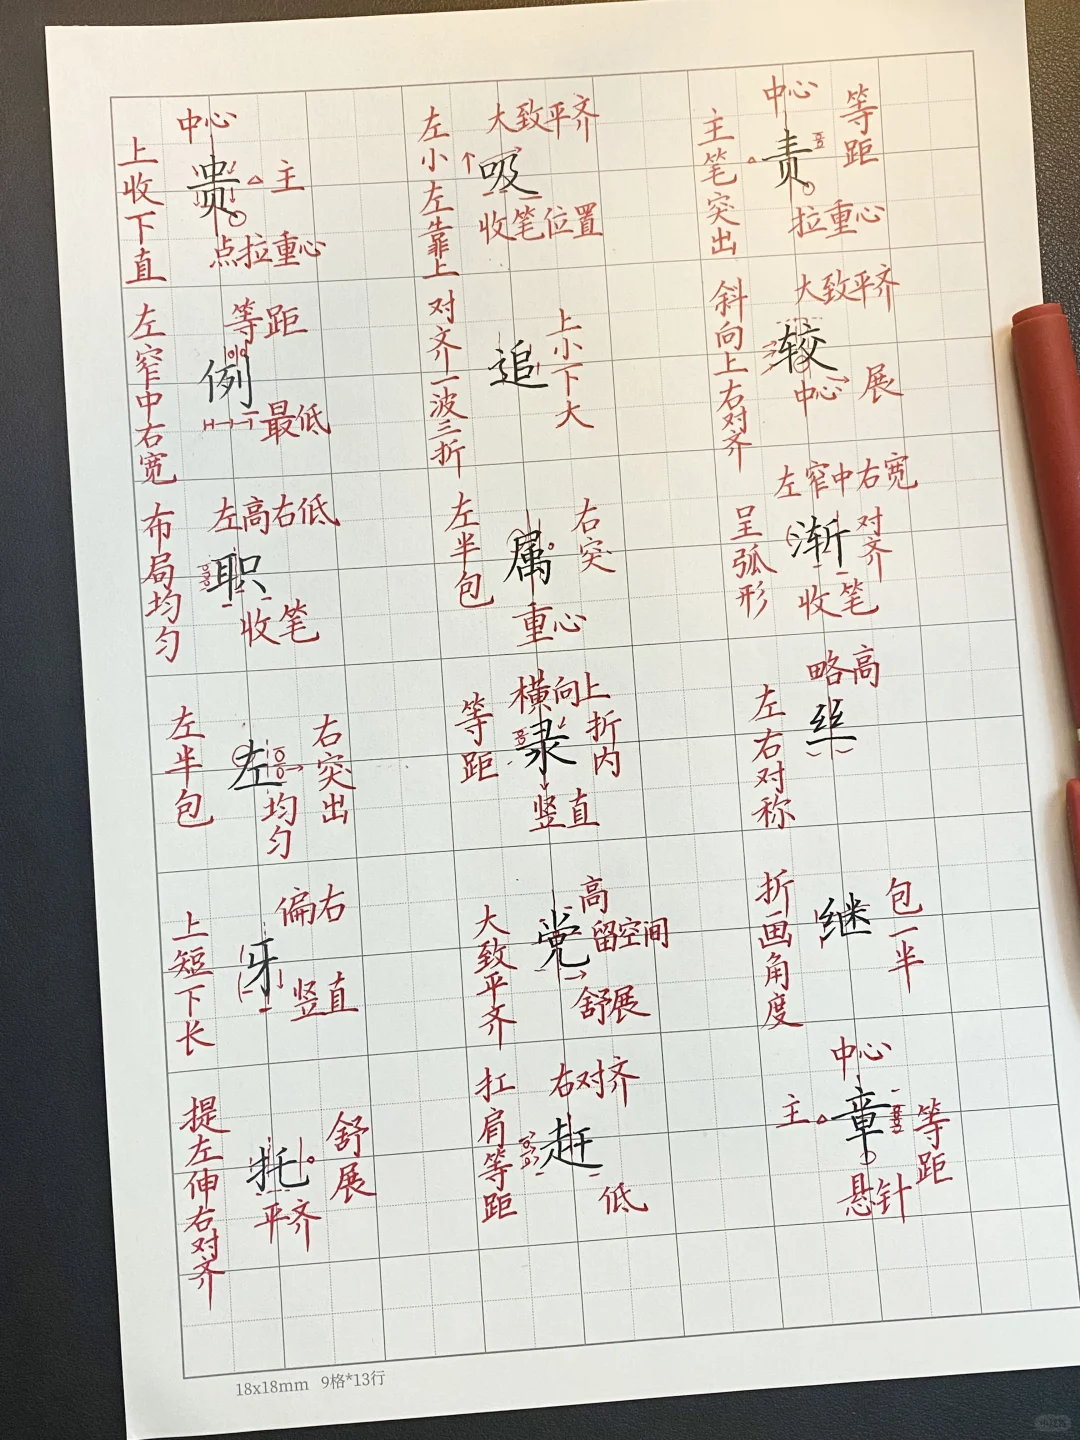 中心
上收下直
贵
主
点拉重心
大致平齐
左小左靠上
吸
收笔位置
中心
等距
主笔突出
责
拉重心
等距
左窄中右宽
例
最低
对齐一波三折
追
上小下大
大致平齐
斜向上右对齐
较
中心
展
左高右低
布局均匀
职
收笔
左半包
属
右突
重心
左窄中右宽
呈弧形
渐
对齐
收笔
左半包
左
右突出
均匀
横向上
等距
录
折内
竖直
略高
左右对称
丝
偏右
上短下长
牙
竖直
高
大致平齐
党
留空间
舒展
折画角度
继
包一半
提左伸右对齐
托
舒展
平齐
右对齐
扛肩等距
赶
低
中心
主
章
等距
悬针
18x18mm 9格*13行